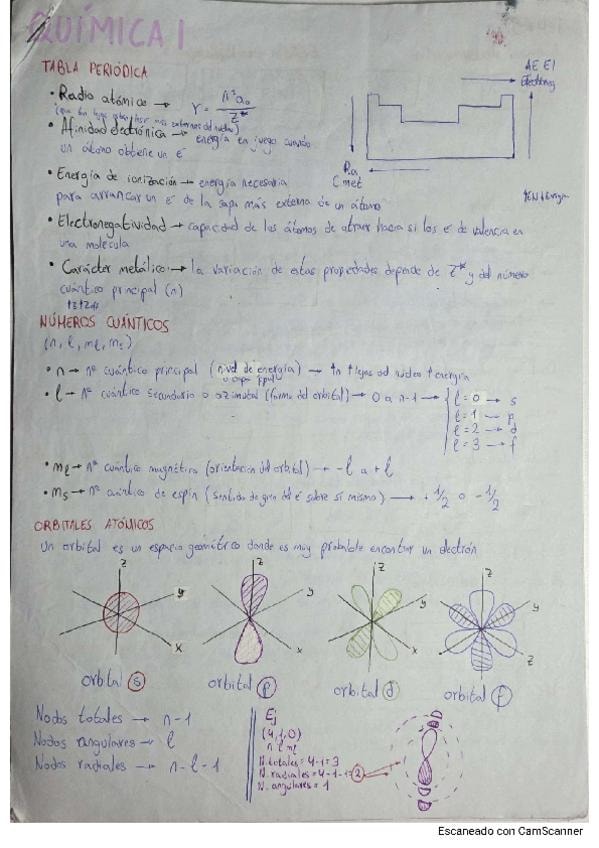 QUÍMICA 1
TABLA PERIÓDICA
AE EI
Electroneg
• Radio atómico → r = n²a₀ / Z*
• Afinidad electrónica → energía en juego cuando
un átomo obtiene un e⁻
Ra
C met
• Energía de ionización → energía necesaria
para arrancar un e⁻ de la capa más externa de un átomo
• Electronegatividad → capacidad de los átomos de atraer hacia sí los e⁻ de valencia en
una molécula
• Carácter metálico → la variación de estas propiedades depende de Z* y del número
cuántico principal (n)
NÚMEROS CUÁNTICOS
(n, l, ml, ms)
• n → nº cuántico principal (nivel de energía) → ↑n ↑lejos del núcleo ↑energía
o capa ppal
• l → nº cuántico secundario o azimutal (forma del orbital) → 0 a n-1 → l = 0 → s
l = 1 → p
l = 2 → d
l = 3 → f
• ml → nº cuántico magnético (orientación del orbital) → -l a +l
• ms → nº cuántico de espín (sentido de giro del e⁻ sobre sí mismo) → +1/2 o -1/2
ORBITALES ATÓMICOS
Un orbital es un espacio geométrico donde es muy probable encontrar un electrón
z y x
z y x
z y
z y z
orbital s
orbital p
orbital d
orbital f
Nodos totales → n-1
Nodos angulares → l
Nodos radiales → n-l-1
Ej
(4,1,0)
n l ml
N. totales = 4-1 = 3
N. radiales = 4-1-1 = 2
N. angulares = 1
Escaneado con CamScanner